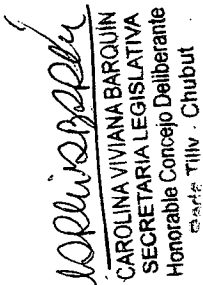 CAROLINA VIVIANA BARQUIN
SECRETARIA LEGISLATIVA
Honorable Concejo Deliberante
Rada Tilly - Chubut